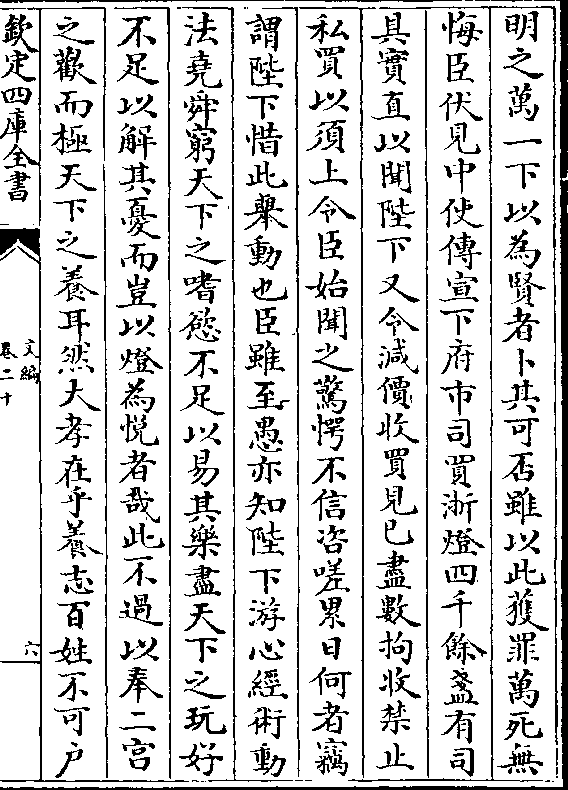 明之萬一下以為賢者卜其可否雖以此獲罪萬死無
悔臣伏見中使傳宣下府市司買浙燈四千餘盞有司
具實直以聞陛下又令減價收買見已盡數拘收禁止
私買以須上令臣始聞之驚愕不信咨嗟累日何者竊
謂陛下惜此舉動也臣雖至愚亦知陛下游心經術動
法堯舜窮天下之嗜慾不足以易其樂盡天下之玩好
不足以解其憂而豈以燈為悅者哉此不過以奉二宮
之歡而極天下之養耳然大孝在乎養志百姓不可户
欽定四庫全書
文編
卷二十
六